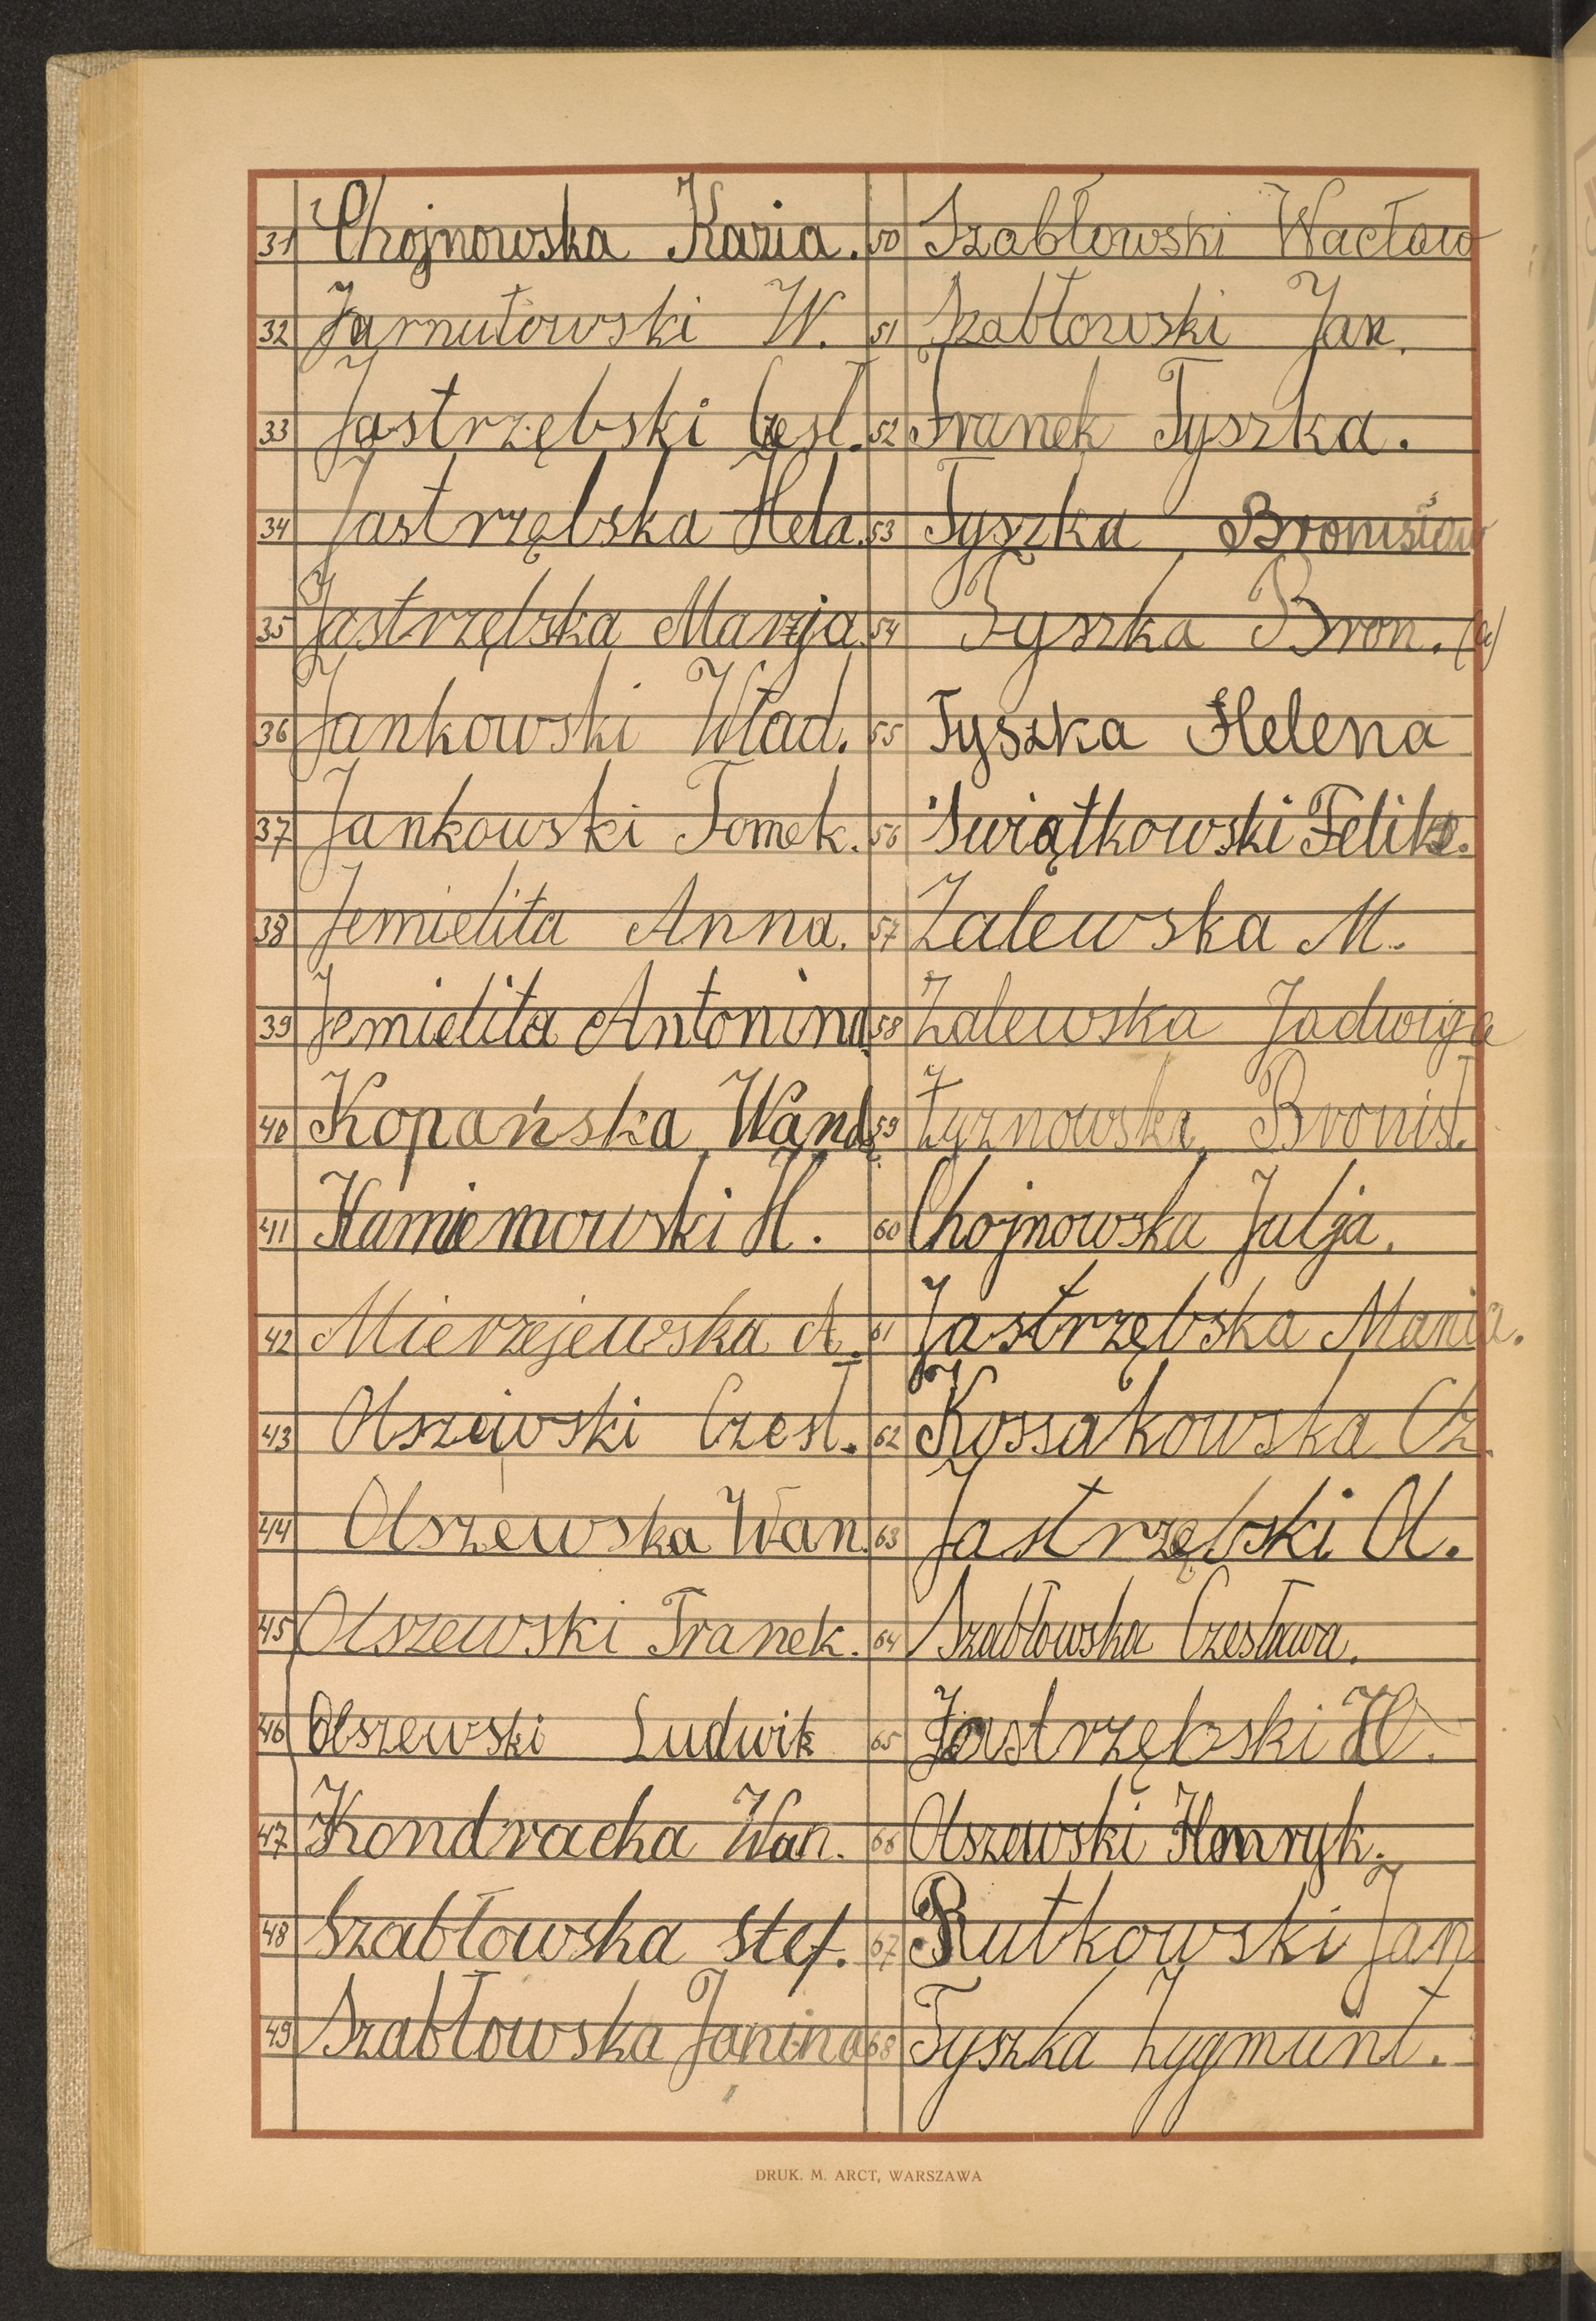 31 Chojnowska Kazia.
32 Jarnutowski W.
33 Jastrzębski Czesł.
34 Jastrzębska Hela.
35 Jastrzębska Marja.
36 Jankowski Wład.
37 Jankowski Tomek.
38 Jemielita Anna.
39 Jemielita Antonina
40 Kopańska Wanda
41 H.
42 Mierzejewska A.
43 Olszewski Czesł.
44 Olszewska Wan.
45 Olszewski Franek.
46 Olszewski Ludwik
47 Kondracka Wan.
48 Szabłowska Stef.
49 Szabłowska Janina
50 Szabłowski Wacław
51 Szabłowski Jan.
52 Franek Tyszka.
53 Tyszka Bronisław
54 Tyszka Bron. (a)
55 Tyszka Helena
56 Świątkowski Feliks.
57 Zalewska M.
58 Zalewska Jadwiga
59 Bronisł.
60 Chojnowska Julja.
61 Jastrzębska Mania.
62 Kossakowska Cz.
63 Jastrzębski A.
64 Szabłowska Czesława.
65 Jastrzębski H.
66 Olszewski Henryk.
67 Rutkowski Jan
68 Tyszka Zygmunt.
DRUK. M. ARCT, WARSZAWA